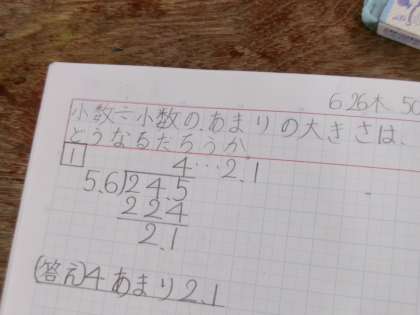 6.26木、50
小数÷小数の、あまりの大きさは、
どうなるだろうか。
1
4…2.1
5.6)24.5
224
2.1
(答え)4あまり2.1